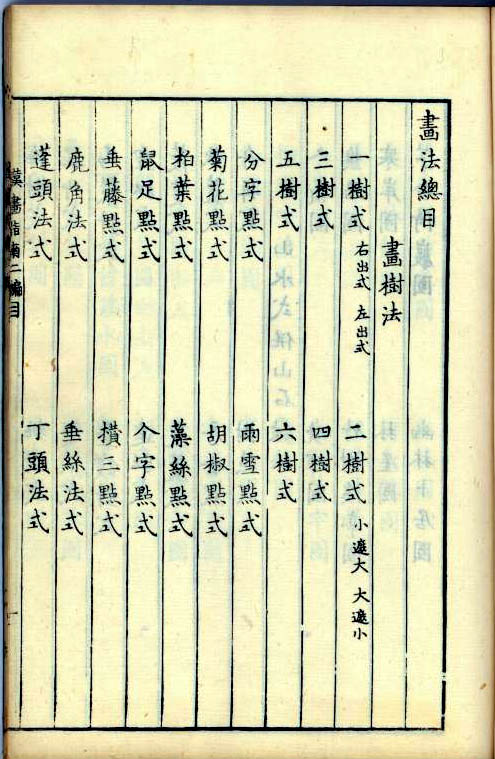 畫法總目
畫樹法
一樹式 右出式 左出式 二樹式 小遮大 大遮小
三樹式 四樹式
五樹式 六樹式
分字點式 雨雪點式
菊花點式 胡椒點式
柏葉點式 藻絲點式
鼠足點式 个字點式
垂藤點式 攢三點式
鹿角法式 垂絲法式
蓬頭法式 丁頭法式
漢畫指南二編目